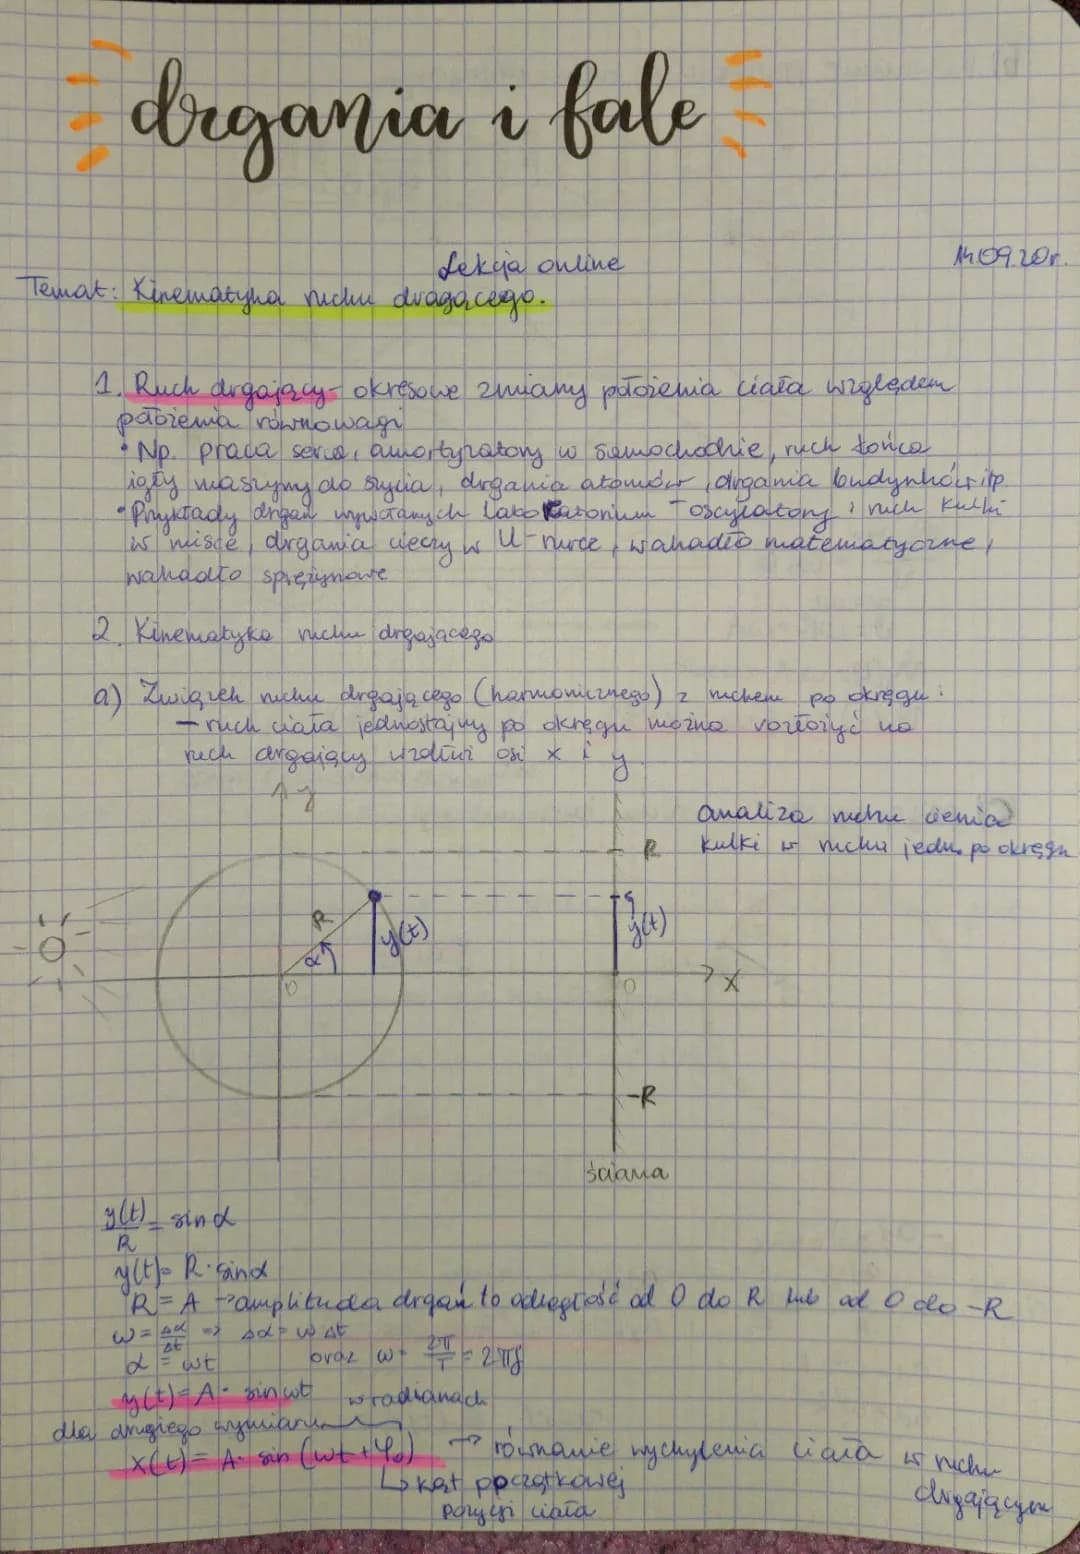 drgania i fale
Lekcja online
14.09.20r.
Temat: Kinematyka ruchu drgającego.
1. Ruch drgający - okresowe zmiany położenia ciała względem
położenia równowagi
• Np. praca serca, amortyzatory w samochodzie, ruch końca
igły maszyny do szycia, drgania atomów, drgania budynków itp.
• Przykłady drgań wywołanych laboratorium - oscylatory: ruch kulki
w misce, drgania cieczy w U-rurce, wahadło matematyczne,
wahadło sprężynowe
2. Kinematyka ruchu drgającego
a) Związek ruchu drgającego (harmonicznego) z ruchem po okręgu:
- ruch ciała jednostajny po okręgu można rozłożyć na
ruch drgający wzdłuż osi x i y
y
analiza ruchu cienia
kulki w ruchu jedn. po okręgu
R
R
α
y(t)
y(t)
0
0
X
-R
ściana
y(t)/R = sin α
y(t) = R · sin α
R = A → amplituda drgań to odległość od 0 do R lub od 0 do -R
ω = Δα/Δt => Δα = ω Δt
α = ωt oraz ω = 2π/T = 2πf
y(t) = A · sin ωt w radianach
dla drugiego wymiaru
x(t) = A · sin (ωt + φ₀) → równanie wychylenia ciała w ruchu
drgającym
↳ kąt początkowej
pozycji ciała